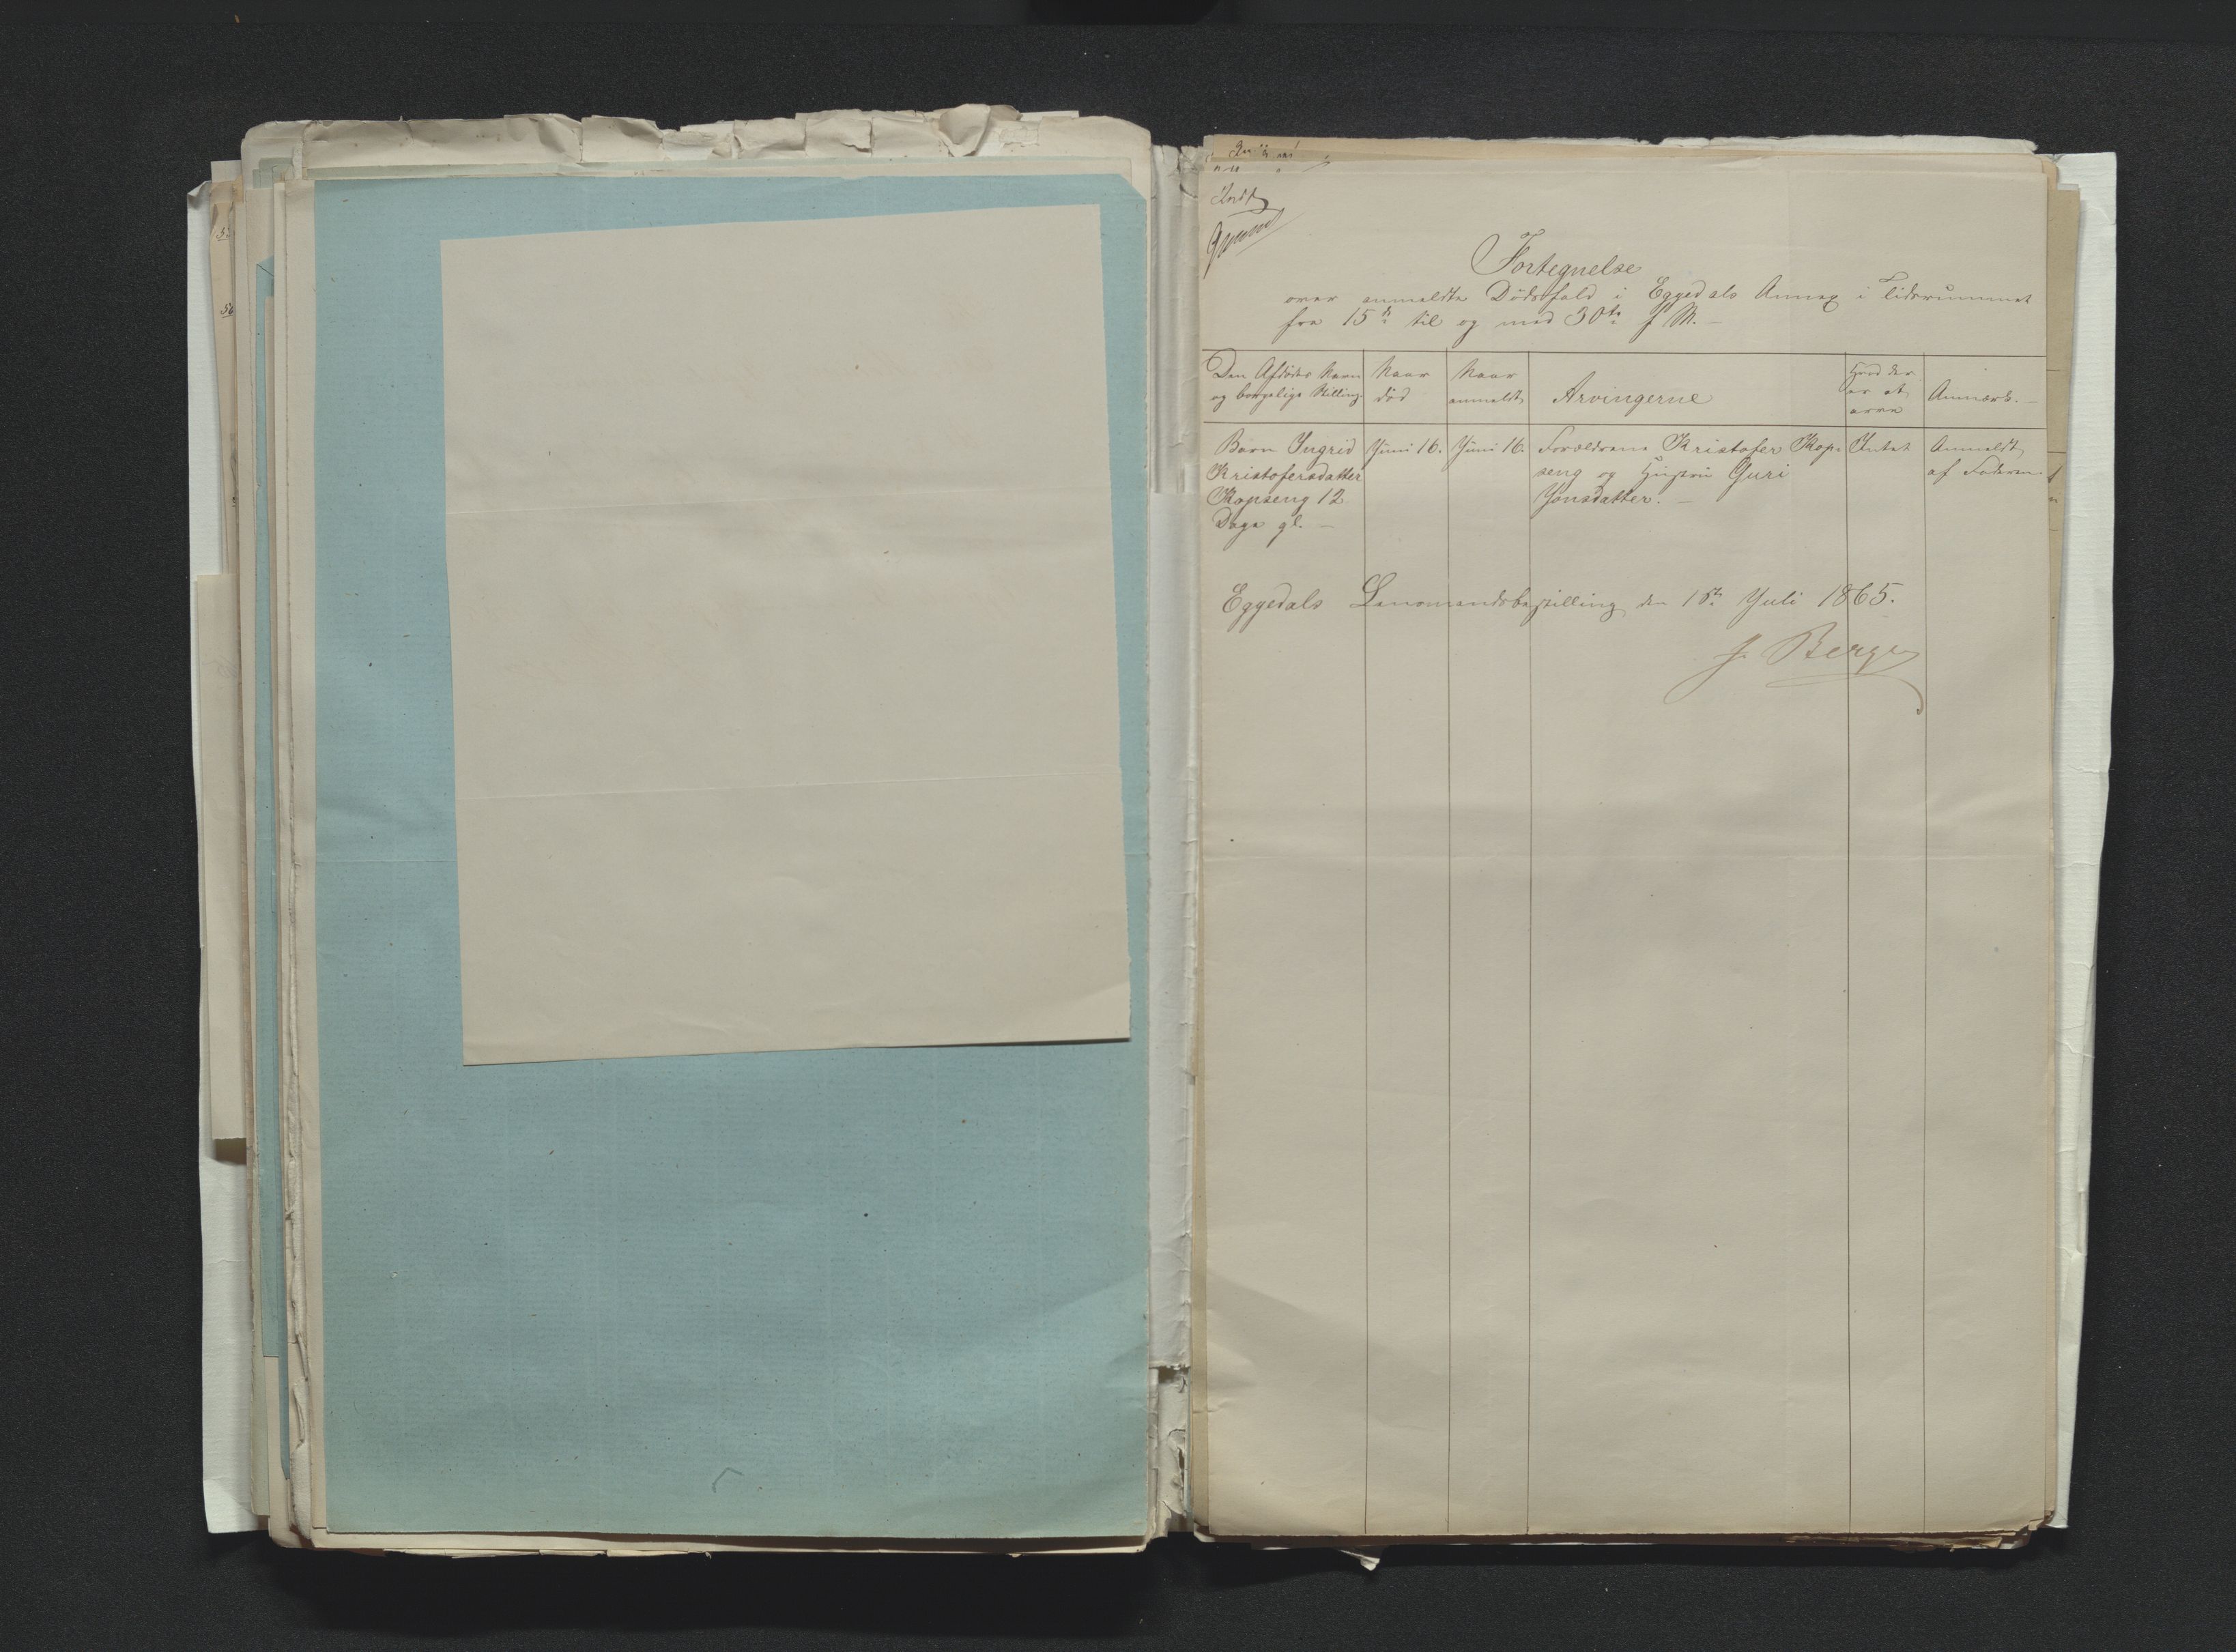 Indf
Fortegnelse
over anmeldte Dödsfald i Eggedals Annex i Tidsrummet
fra 15de til og med 30te f M. –
Den Afdödes Navn
og borgelige Stilling.
Naar
död
Naar
anmeldt
Arvingerne
Hvad der
er at
arve
Anmærk. –
Barn Ingrid
Kristofersdatter
Kopseng 12
Dage gl. –
Juni 16.
Juni 16.
Forældrene Kristofer Kop-
seng og Hustru Guri
Jonsdatter. –
Intet
Anmeldt
af Faderen.
Eggedals Lensmandsbestilling den 1ste Juli 1865.
J. Berge